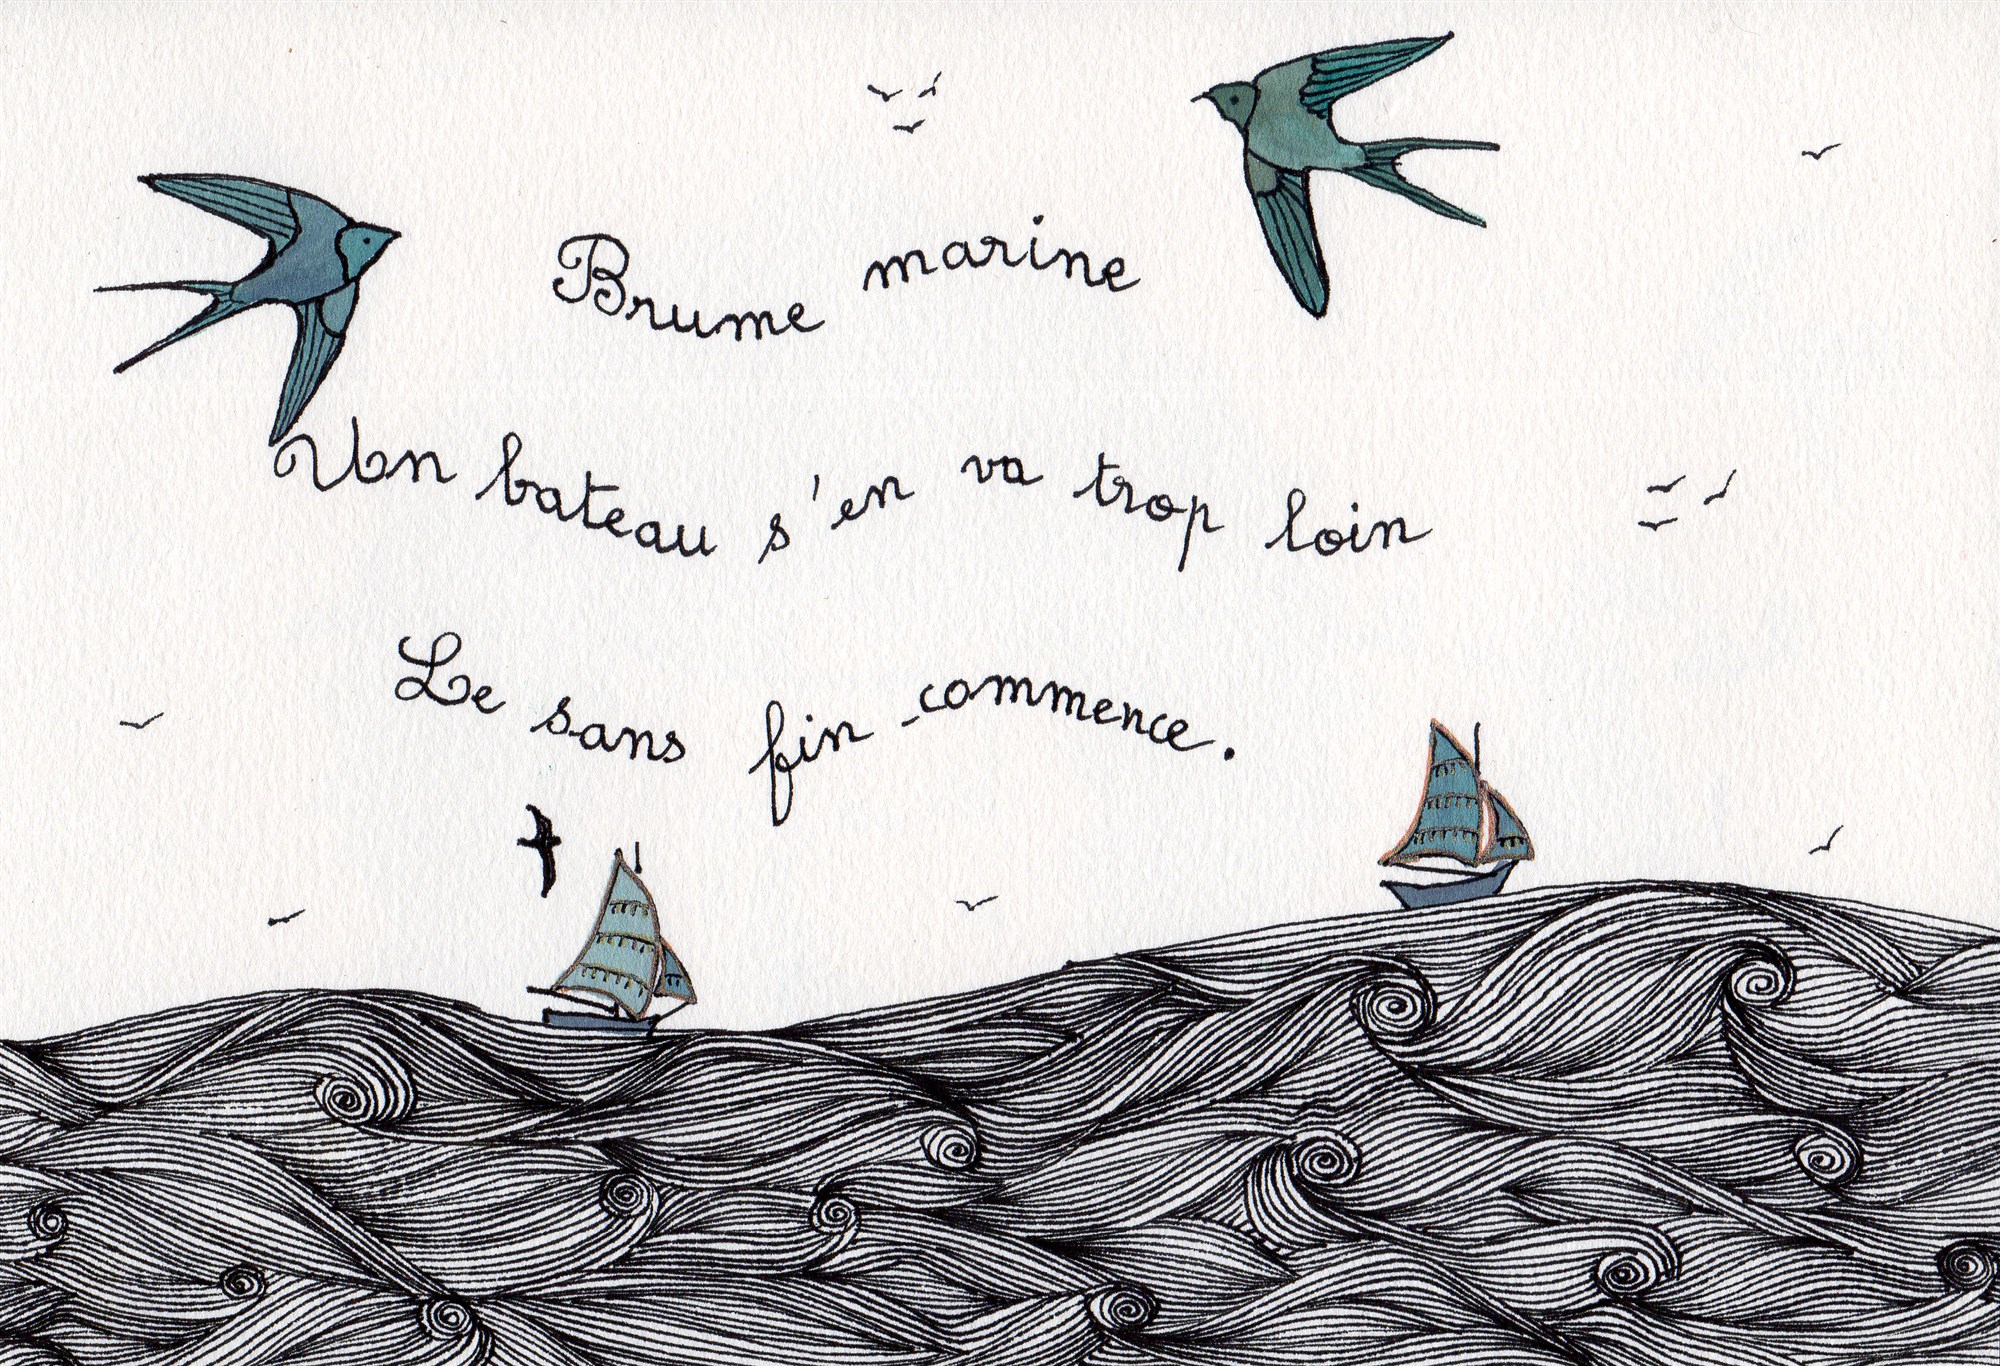 Brume marine
Un bateau s'en va trop loin
Le sans fin commence.